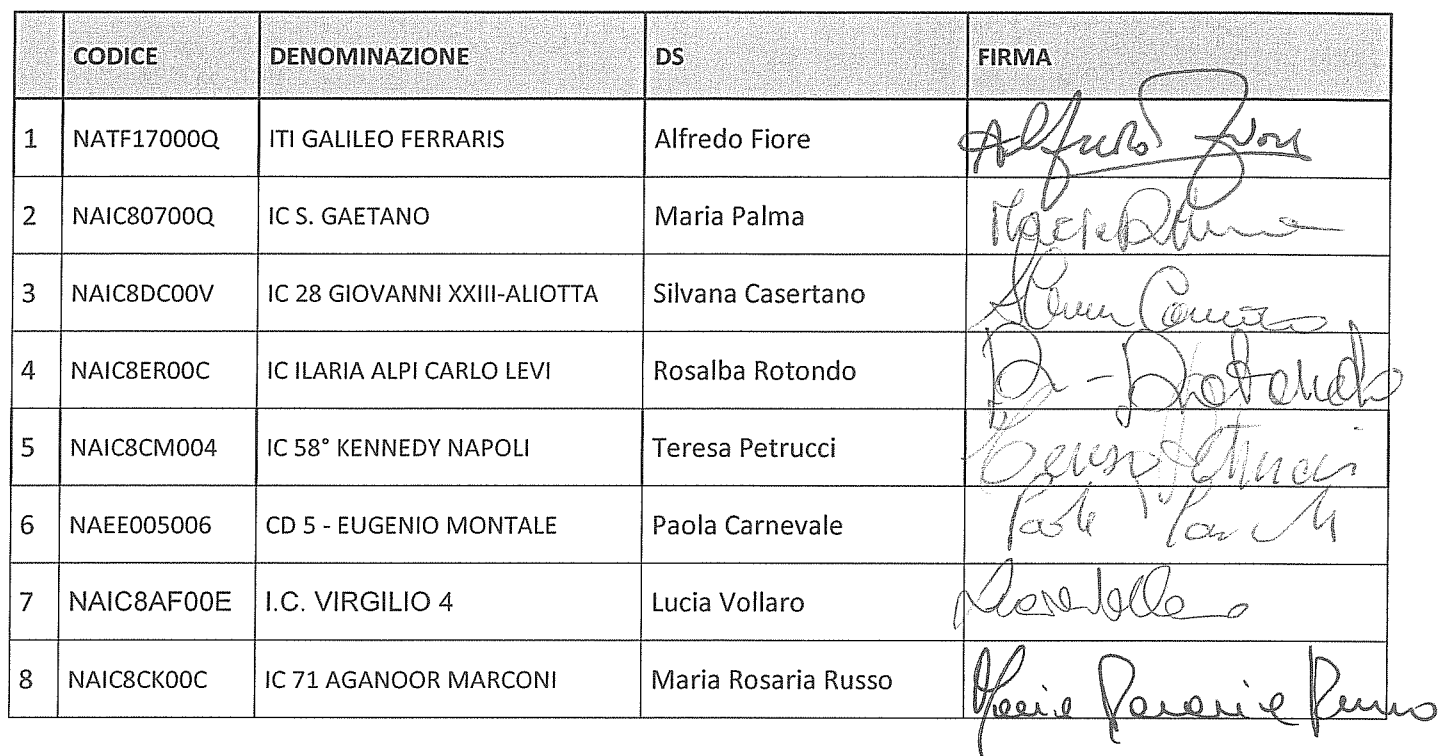 CODICE DENOMINAZIONE DS FIRMA
1 NATF17000Q ITI GALILEO FERRARIS Alfredo Fiore Alfredo Fiore
2 NAIC80700Q IC S. GAETANO Maria Palma Maria Palma
3 NAIC8DC00V IC 28 GIOVANNI XXIII-ALIOTTA Silvana Casertano
4 NAIC8ER00C IC ILARIA ALPI CARLO LEVI Rosalba Rotondo R - Rotondo
5 NAIC8CM004 IC 58° KENNEDY NAPOLI Teresa Petrucci Teresa Petrucci
6 NAEE005006 CD 5 - EUGENIO MONTALE Paola Carnevale Paola
7 NAIC8AF00E I.C. VIRGILIO 4 Lucia Vollaro
8 NAIC8CK00C IC 71 AGANOOR MARCONI Maria Rosaria Russo Maria Rosaria Russo